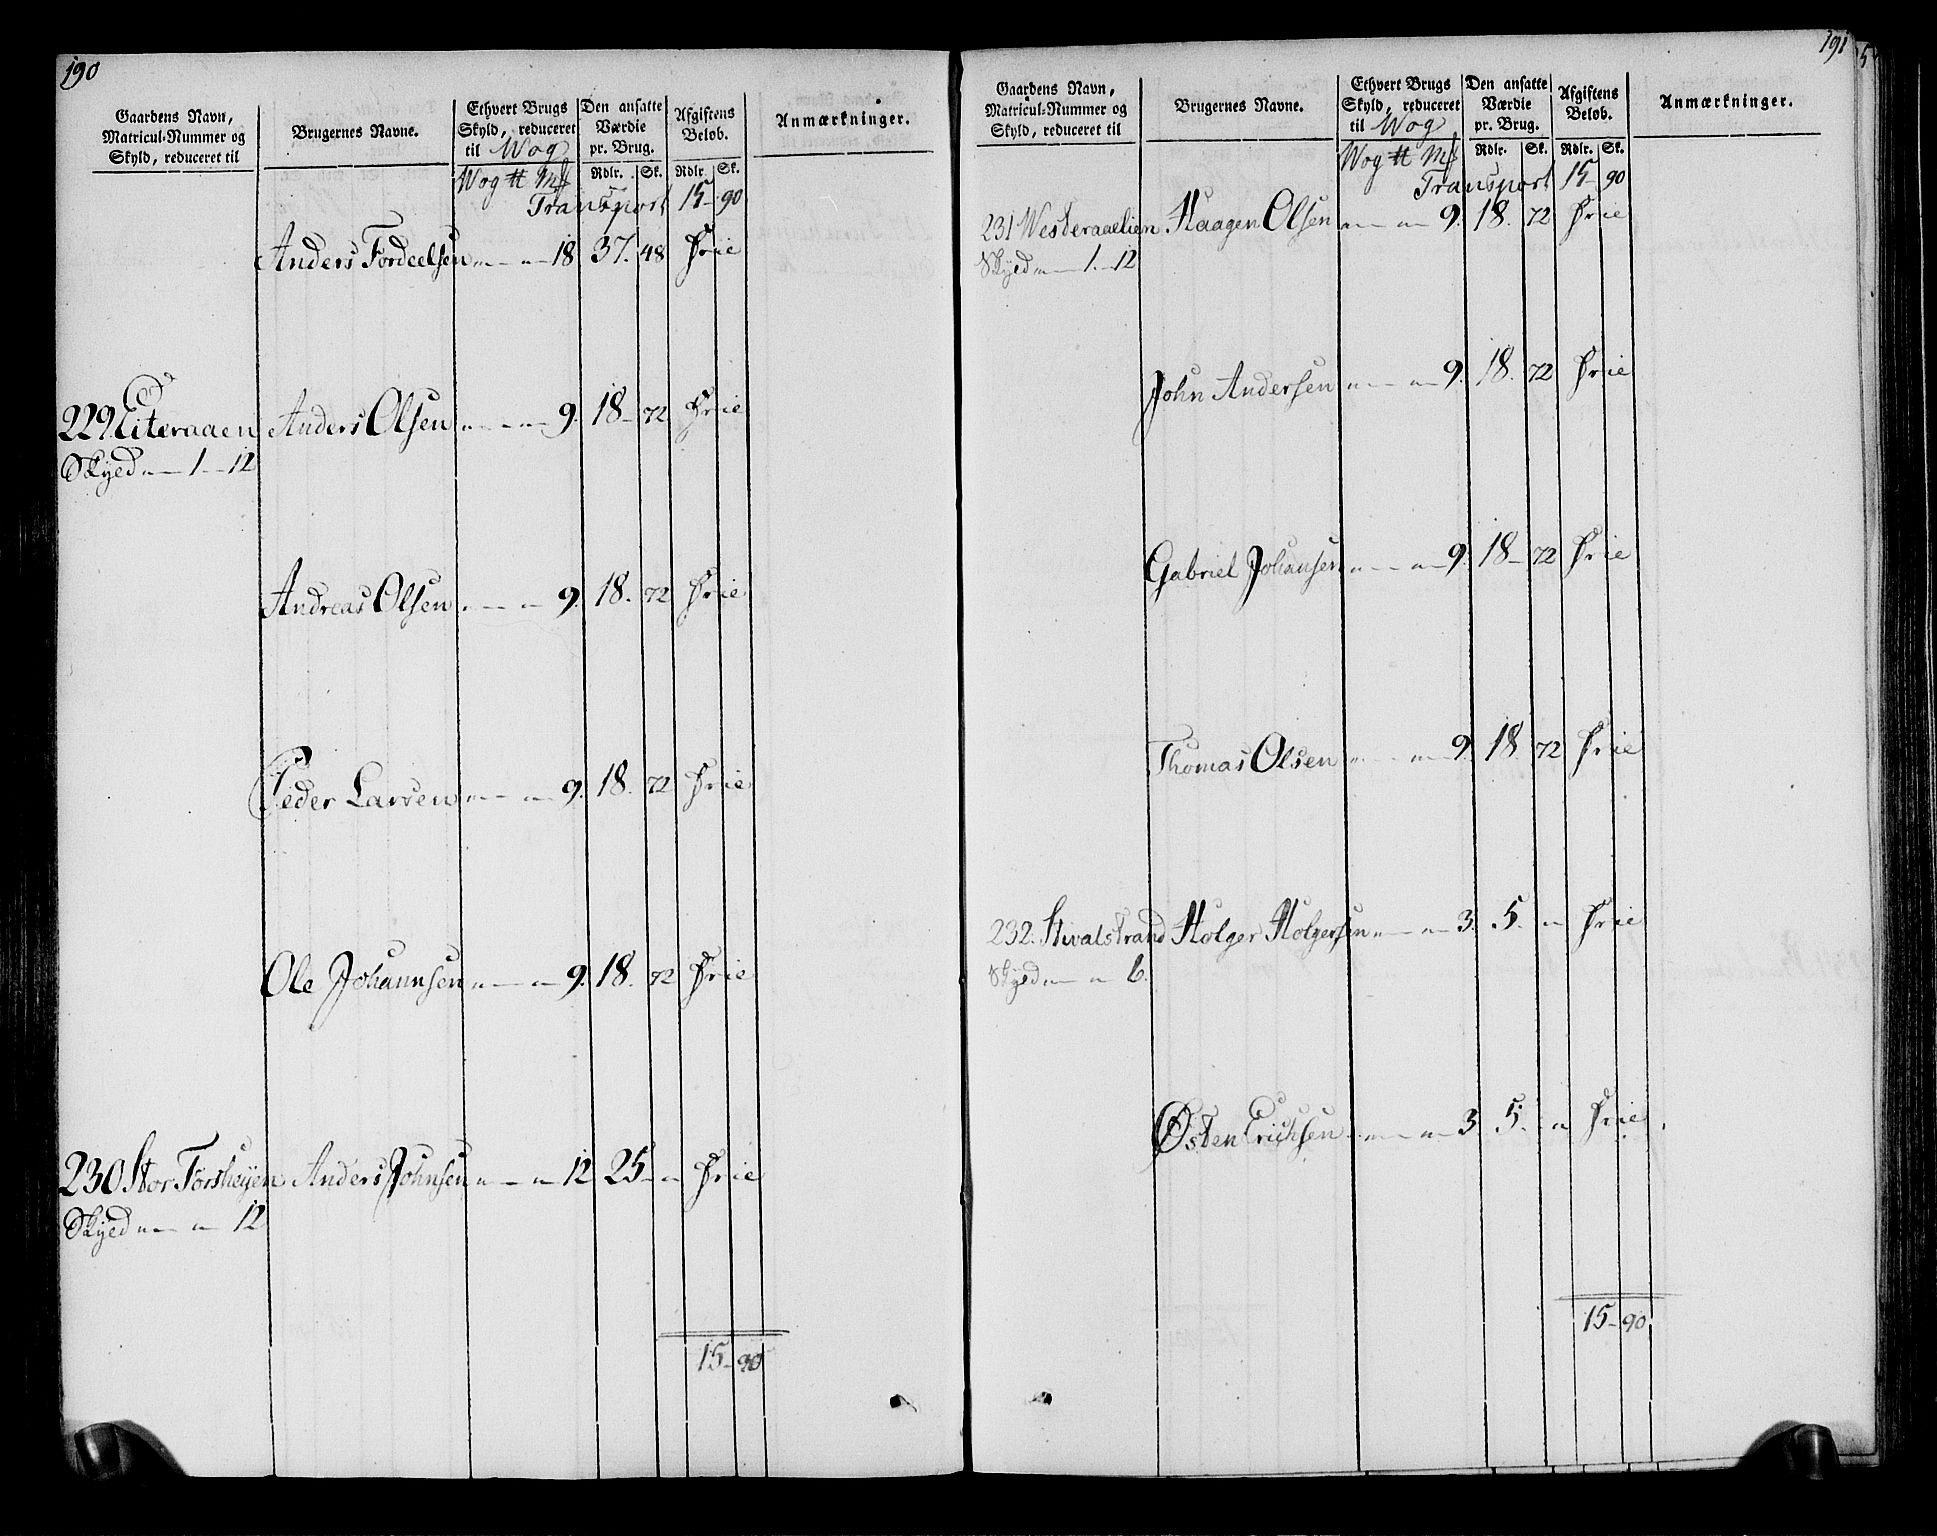 190
Gaardens Navn, Matricul-Nummer og Skyld, reduceret til
Brugernes Navne.
Ethvert Brugs Skyld, reduceret til Wog
Den ansatte Værdie pr. Brug.
Afgiftens Beløb.
Anmærkninger.
Wog ℔ Mk Rdlr. Sk. Rdlr. Sk.
Transport 15 - 90
Anders Fordeelsen „ — „ — 18 37. 48 Frie
229 Eiteraaen Anders Olsen „ — „ — 9. 18 - 72 Frie
Skyld „ — 1. - 12
Andreas Olsen „ — „ — 9. 18. 72 Frie
Peder Larsen „ — „ — 9. 18. 72 Frie
Ole Johannsen „ — „ — 9. 18. 72 Frie
230 Stor Forsheyen Anders Johnsen „ — „ — 12 25 - „ Frie
Skyld „ — „ — 12
15 - 90
191
Gaardens Navn, Matricul-Nummer og Skyld, reduceret til
Brugernes Navne.
Ethvert Brugs Skyld, reduceret til Wog
Den ansatte Værdie pr. Brug.
Afgiftens Beløb.
Anmærkninger.
Wog ℔ Mk Rdlr. Sk. Rdlr. Sk.
Transport 15 - 90
231 Westeraaelien Haagen Olsen „ — „ — 9. 18. 72 Frie
Skyld „ — 1. - 12
John Andersen „ — „ — 9. 18. 72 Frie
Gabriel Johansen „ — „ — 9. 18 - 72 Frie
Thomas Olsen „ — „ — 9. 18 72 Frie
232. Hvalstrand Holger Holgersen „ — „ — 3. 5. „ Frie
Skyld „ — „ 6.
Østen Erichsen „ — „ — 3 5. „ Frie
15 - 90